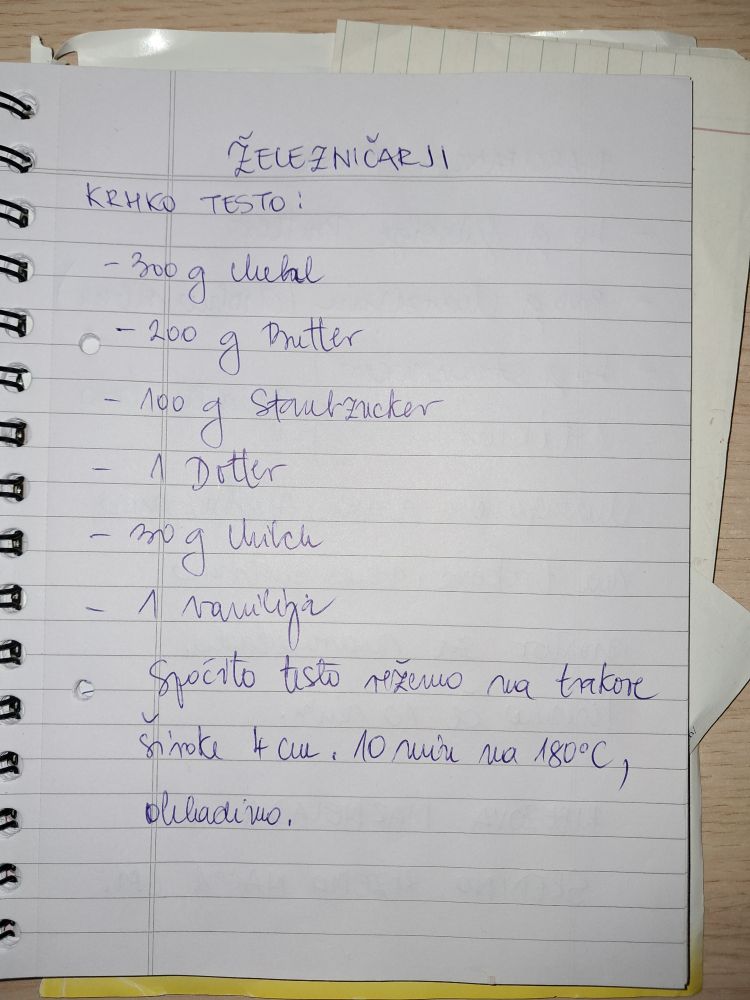 ŽELEZNIČARJI
KRHKO TESTO:
- 300 g Mehl
- 200 g Butter
- 100 g Staubzucker
- 1 Dotter
- 30 g Milch
- 1 vanilija
Spočito testo režemo na trakove
široke 4 cm. 10 min na 180°C,
ohladimo.